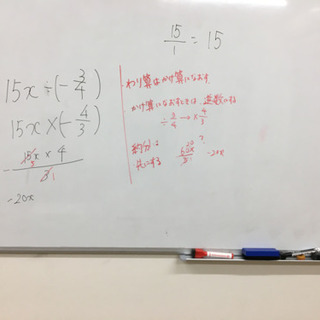 15/1 = 15
15x ÷ (- 3/4)
15x × (- 4/3)
- 15x × 4 / 3
-20x
わり算はかけ算になおす
かけ算になおすときは 逆数にする
÷ 3/4 → × 4/3
約分は
先にする
60x/3
-20x